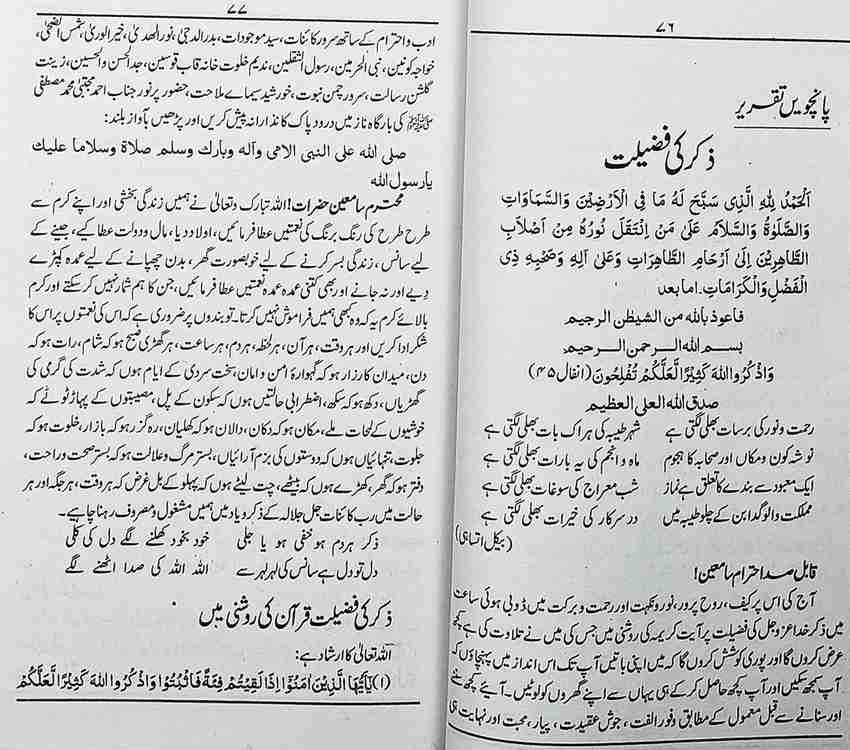 ۷۶
پانچویں تقریر
ذکر کی فضیلت
اَلْحَمْدُ لِلّٰہِ الَّذِی سَبَّحَ لَہٗ مَا فِی الْاَرْضِیْنَ وَالسَّمَاوَاتِ
وَالصَّلٰوۃُ وَالسَّلَامُ عَلٰی مَنْ اِنْتَقَلَ نُوْرُہٗ مِنْ اَصْلَابِ
الطَّاھِرِیْنَ اِلٰی اَرْحَامِ الطَّاھِرَاتِ وَعَلٰی آلِہٖ وَصَحْبِہٖ ذِی
الْفَضْلِ وَالْکَرَامَاتِ. اما بعد
فاعوذ باللہ من الشیطٰن الرجیم
بسم اللہ الرحمن الرحیم
وَاذْکُرُوا اللہَ کَثِیْرًا لَّعَلَّکُمْ تُفْلِحُوْنَ (انفال ۴۵)
صدق اللہ العلی العظیم
رحمت و نور کی برسات بھلی لگتی ہے شہر طیبہ کی ہر اک بات بھلی لگتی ہے
نوشہ کون و مکاں اور صحابہ کا ہجوم ماہ و انجم کی یہ بارات بھلی لگتی ہے
ایک معبود سے بندے کا تعلق ہے نماز شب معراج کی سوغات بھلی لگتی ہے
مملکت والو گدا بن کے چلو طیبہ میں در سرکار کی خیرات بھلی لگتی ہے
(بیکل اتساہی)
قابل صد احترام سامعین!
آج کی اس پر کیف، روح پرور، نور و نکہت اور رحمت و برکت میں ڈوبی ہوئی ساعت
میں ذکر خدا عز و جل کی فضیلت پر آیت کریمہ کی روشنی میں جس کی میں نے تلاوت کی ہے کچھ
عرض کروں گا اور پوری کوشش کروں گا کہ میں اپنی باتیں آپ تک اس انداز میں پہنچاؤں کہ
آپ سمجھ سکیں اور آپ کچھ حاصل کر کے ہی یہاں سے اپنے گھروں کو لوٹیں۔ آیئے کچھ سننے
اور سنانے سے قبل معمول کے مطابق وفور الفت، جوش عقیدت، پیار، محبت اور نہایت ہی
۷۷
ادب و احترام کے ساتھ سرور کائنات، سید موجودات، بدر الدجیٰ، نور الھدیٰ، خیر الوریٰ، شمس الضحیٰ،
خواجہ کونین، نبی الحرمین، رسول الثقلین، ندیم خلوت خانہ قاب قوسین، جد الحسن والحسین، زینت
گلشن رسالت، سرور چمن نبوت، خورشید سیمائے ملاحت، حضور پر نور جناب احمد مجتبیٰ محمد مصطفی
ﷺ کی بارگاہ ناز میں درود پاک کا نذرانہ پیش کریں اور پڑھیں بآواز بلند:
صلی اللہ علی النبی الامی وآلہ وبارک وسلم صلاۃ وسلاما علیک
یا رسول اللہ
محترم سامعین حضرات! اللہ تبارک وتعالیٰ نے ہمیں زندگی بخشی اور اپنے کرم سے
طرح طرح کی رنگ برنگ کی نعمتیں عطا فرمائیں، اولاد دیا، مال و دولت عطا کیے، جینے کے
لیے سانس، زندگی بسر کرنے کے لیے خوبصورت گھر، بدن چھپانے کے لیے عمدہ کپڑے
دیے اور نہ جانے اور بھی کتنی عمدہ عمدہ نعمتیں عطا فرمائیں، جن کا ہم شمار نہیں کر سکتے اور کرم
بالائے کرم یہ کہ وہ کبھی ہمیں فراموش نہیں کرتا۔ تو بندوں پر ضروری ہے کہ اس کی نعمتوں پر اس کا
شکر ادا کریں اور ہر وقت، ہر آن، ہر لحظہ، ہر دم، ہر ساعت، ہر گھڑی صبح ہو کہ شام، رات ہو کہ
دن، میدان کارزار ہو کہ گہوارۂ امن و امان، سخت سردی کے ایام ہوں کہ شدت کی گرمی کی
گھڑیاں، دکھ ہو کہ سکھ، اضطرابی حالتیں ہوں کہ سکون کے پل، مصیبتوں کے پہاڑ ٹوٹے کہ
خوشیوں کے لمحات ملے، مکان ہو کہ دکان، دالان ہو کہ کھلیان، رہ گزر ہو کہ بازار، خلوت ہو کہ
جلوت، تنہائیاں ہوں کہ دوستوں کی بزم آرائیاں، بستر مرگ و علالت ہو کہ بستر صحت و راحت،
دفتر ہو کہ گھر، کھڑے ہوں کہ بیٹھے، چت لیٹے ہوں کہ پہلو کے بل غرض کہ ہر وقت، ہر جگہ اور ہر
حالت میں رب کائنات جل جلالہ کے ذکر و یاد میں ہمیں مشغول و مصروف رہنا چاہیے۔
ذکر ہر دم ہو خفی ہو یا جلی خود بخود کھلنے لگے دل کی کلی
دل تو دل ہے سانس کی لہر لہر سے اللہ اللہ کی صدا اٹھنے لگے
ذکر کی فضیلت قرآن کی روشنی میں
اللہ تعالیٰ کا ارشاد ہے:
(۱) یٰۤاَیُّھَا الَّذِیْنَ اٰمَنُوْۤا اِذَا لَقِیْتُمْ فِئَۃً فَاثْبُتُوْا وَاذْکُرُوا اللہَ کَثِیْرًا لَّعَلَّکُمْ